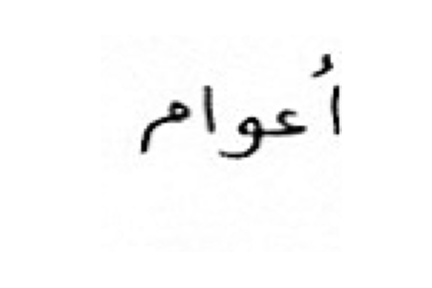 أعوام